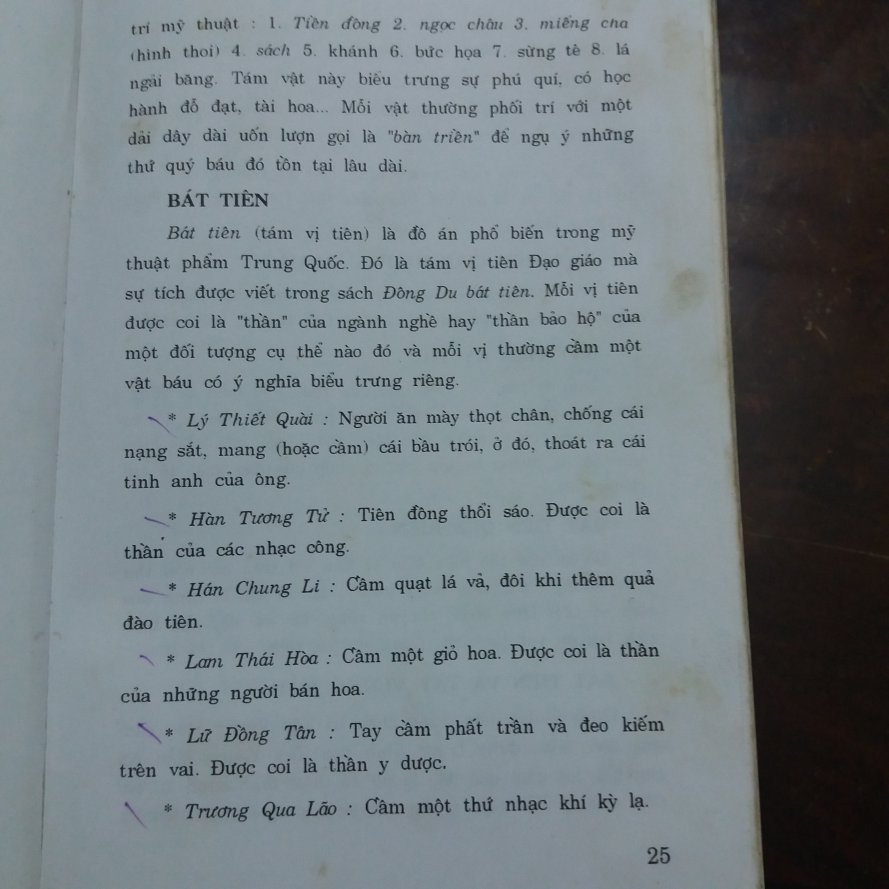 trí mỹ thuật : 1. Tiền đồng 2. ngọc châu 3. miếng cha
(hình thoi) 4. sách 5. khánh 6. bức họa 7. sừng tê 8. lá
ngải băng. Tám vật này biểu trưng sự phú quí, có học
hành đỗ đạt, tài hoa... Mỗi vật thường phối trí với một
dải dây dài uốn lượn gọi là "bàn triền" để ngụ ý những
thứ quý báu đó tồn tại lâu dài.
BÁT TIÊN
Bát tiên (tám vị tiên) là đồ án phổ biến trong mỹ
thuật phẩm Trung Quốc. Đó là tám vị tiên Đạo giáo mà
sự tích được viết trong sách Đông Du bát tiên. Mỗi vị tiên
được coi là "thần" của ngành nghề hay "thần bảo hộ" của
một đối tượng cụ thể nào đó và mỗi vị thường cầm một
vật báu có ý nghĩa biểu trưng riêng.
* Lý Thiết Quài : Người ăn mày thọt chân, chống cái
nạng sắt, mang (hoặc cầm) cái bầu trói, ở đó, thoát ra cái
tinh anh của ông.
* Hàn Tương Tử : Tiên đồng thổi sáo. Được coi là
thần của các nhạc công.
* Hán Chung Li : Cầm quạt lá vả, đôi khi thêm quả
đào tiên.
* Lam Thái Hòa : Cầm một giỏ hoa. Được coi là thần
của những người bán hoa.
* Lữ Đồng Tân : Tay cầm phất trần và đeo kiếm
trên vai. Được coi là thần y dược.
* Trương Qua Lão : Cầm một thứ nhạc khí kỳ lạ.
25